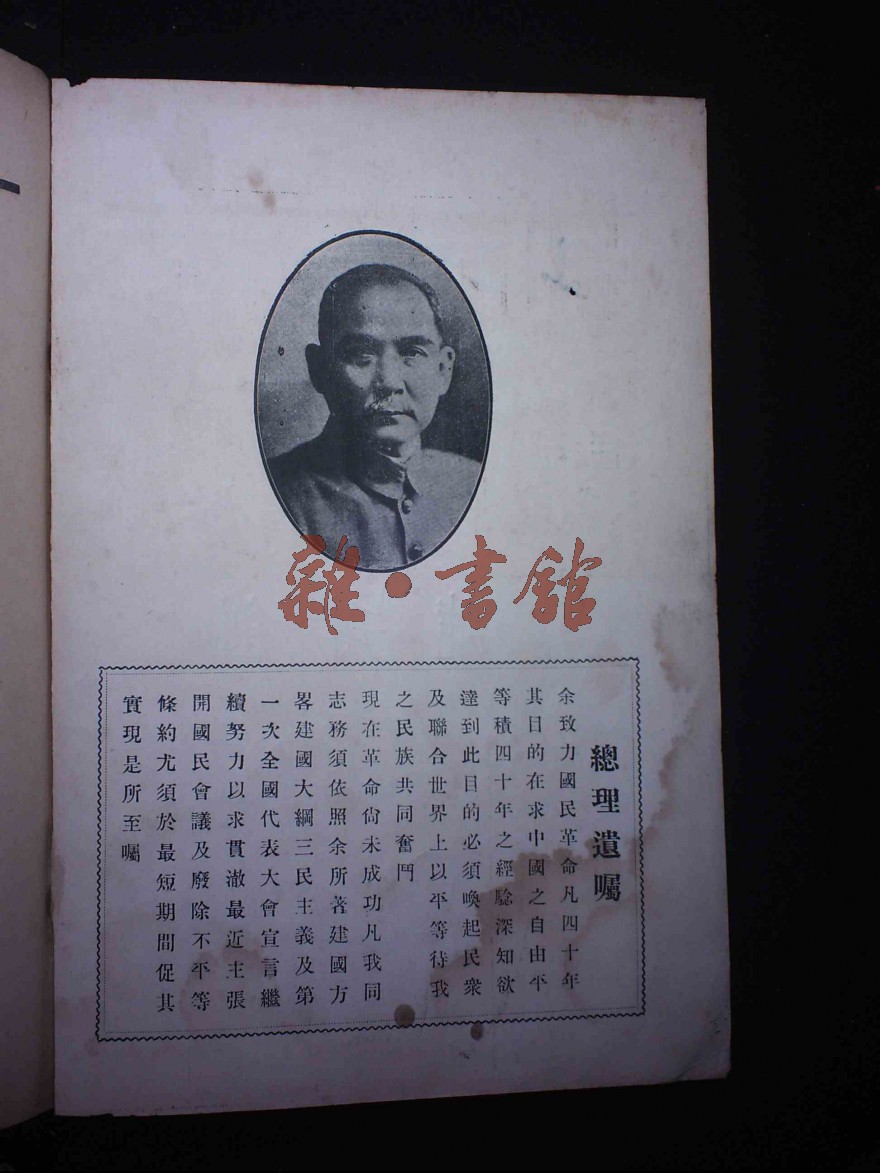 雜·書館
總理遺囑
余致力國民革命凡四十年
其目的在求中國之自由平
等積四十年之經驗深知欲
達到此目的必須喚起民衆
及聯合世界上以平等待我
之民族共同奮鬥
現在革命尙未成功凡我同
志務須依照余所著建國方
畧建國大綱三民主義及第
一次全國代表大會宣言繼
續努力以求貫澈最近主張
開國民會議及廢除不平等
條約尤須於最短期間促其
實現是所至囑